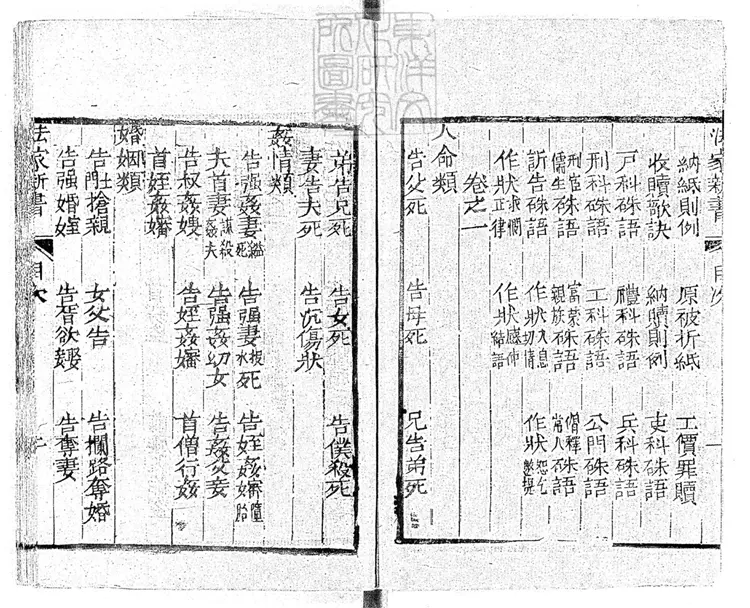 法家新書 目次
納紙則例 原被折紙 工價罪贖
收贖歌訣 納贖則例 吏科硃語
戶科硃語 禮科硃語 兵科硃語
刑科硃語 工科硃語 公門硃語
儒生硃語 親族硃語 常人硃語
訴告硃語
卷之一
人命類
告父死 告母死 兄告弟死
弟告兄死 告女死 告僕殺死
妻告夫死 告沉傷狀
姦情類
告强姦妻 告强妻 死 告姪姦嬸
夫首妻 告强姦幼女 告姦父妾
告叔姦嫂 告姪姦嬸 首僧行姦
首姪姦嬸
婚姻類
告 搶親 女父告 告攔路奪婚
告强婚姪 告胥欲娶 告奪妻
法家新書 目次